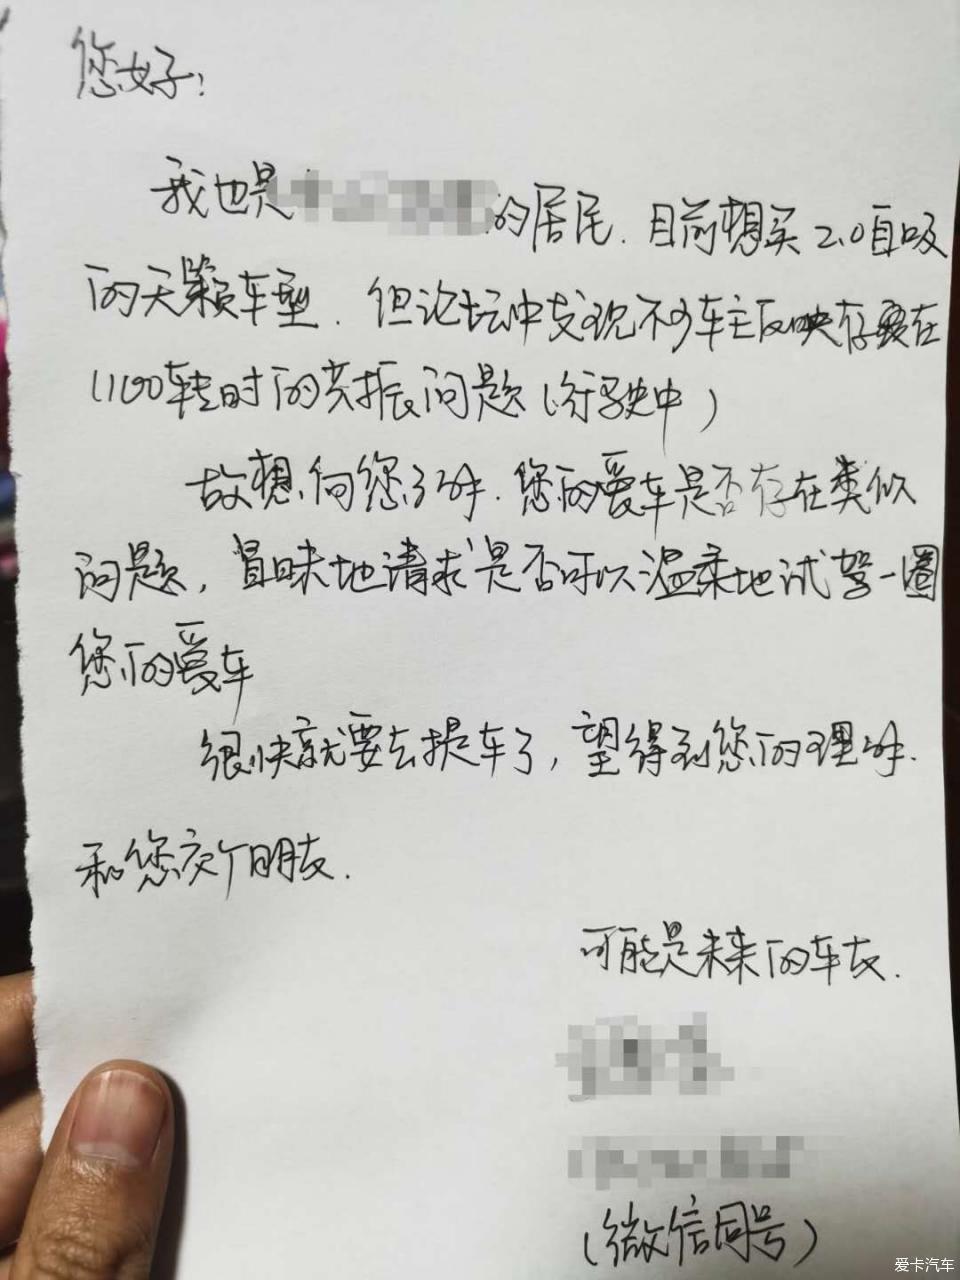 您好:
我也是
的居民.目前想买2.0自吸
的天籁车型.但论坛中发现不少车主反映存在
1100转时的共振问题(行驶中)
故想向您了解.您的爱车是否存在类似
问题,冒昧地请求是否可以温柔地试驾一圈
您的爱车
很快就要去提车了,望得到您的理解.
和您交个朋友.
可能是未来的车友.
(微信同号)
爱卡汽车